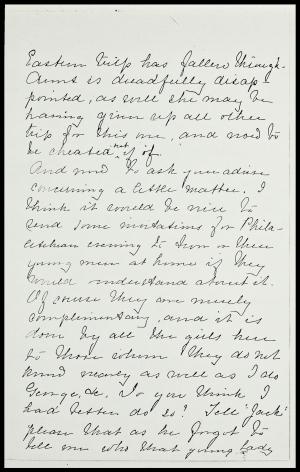 Eastern trip has fallen through.
Aunt is dreadfully disap-
pointed, as well she may be
having given up all other
trip for this one, and now to
be cheated out of it.
And now to ask your advice
concerning a little matter. I
think it would be nice to
send some invitations for Phila-
lethean evening to two or three
young men at home if they
would understand about it.
Of course they are merely
complimentary, and it is
done by all the girls here
to those whom they do not
know nearly as well as I do
George, &c. Do you think I
had better do so? Tell "Jack"
please that as he forgot to
tell me who that young lady